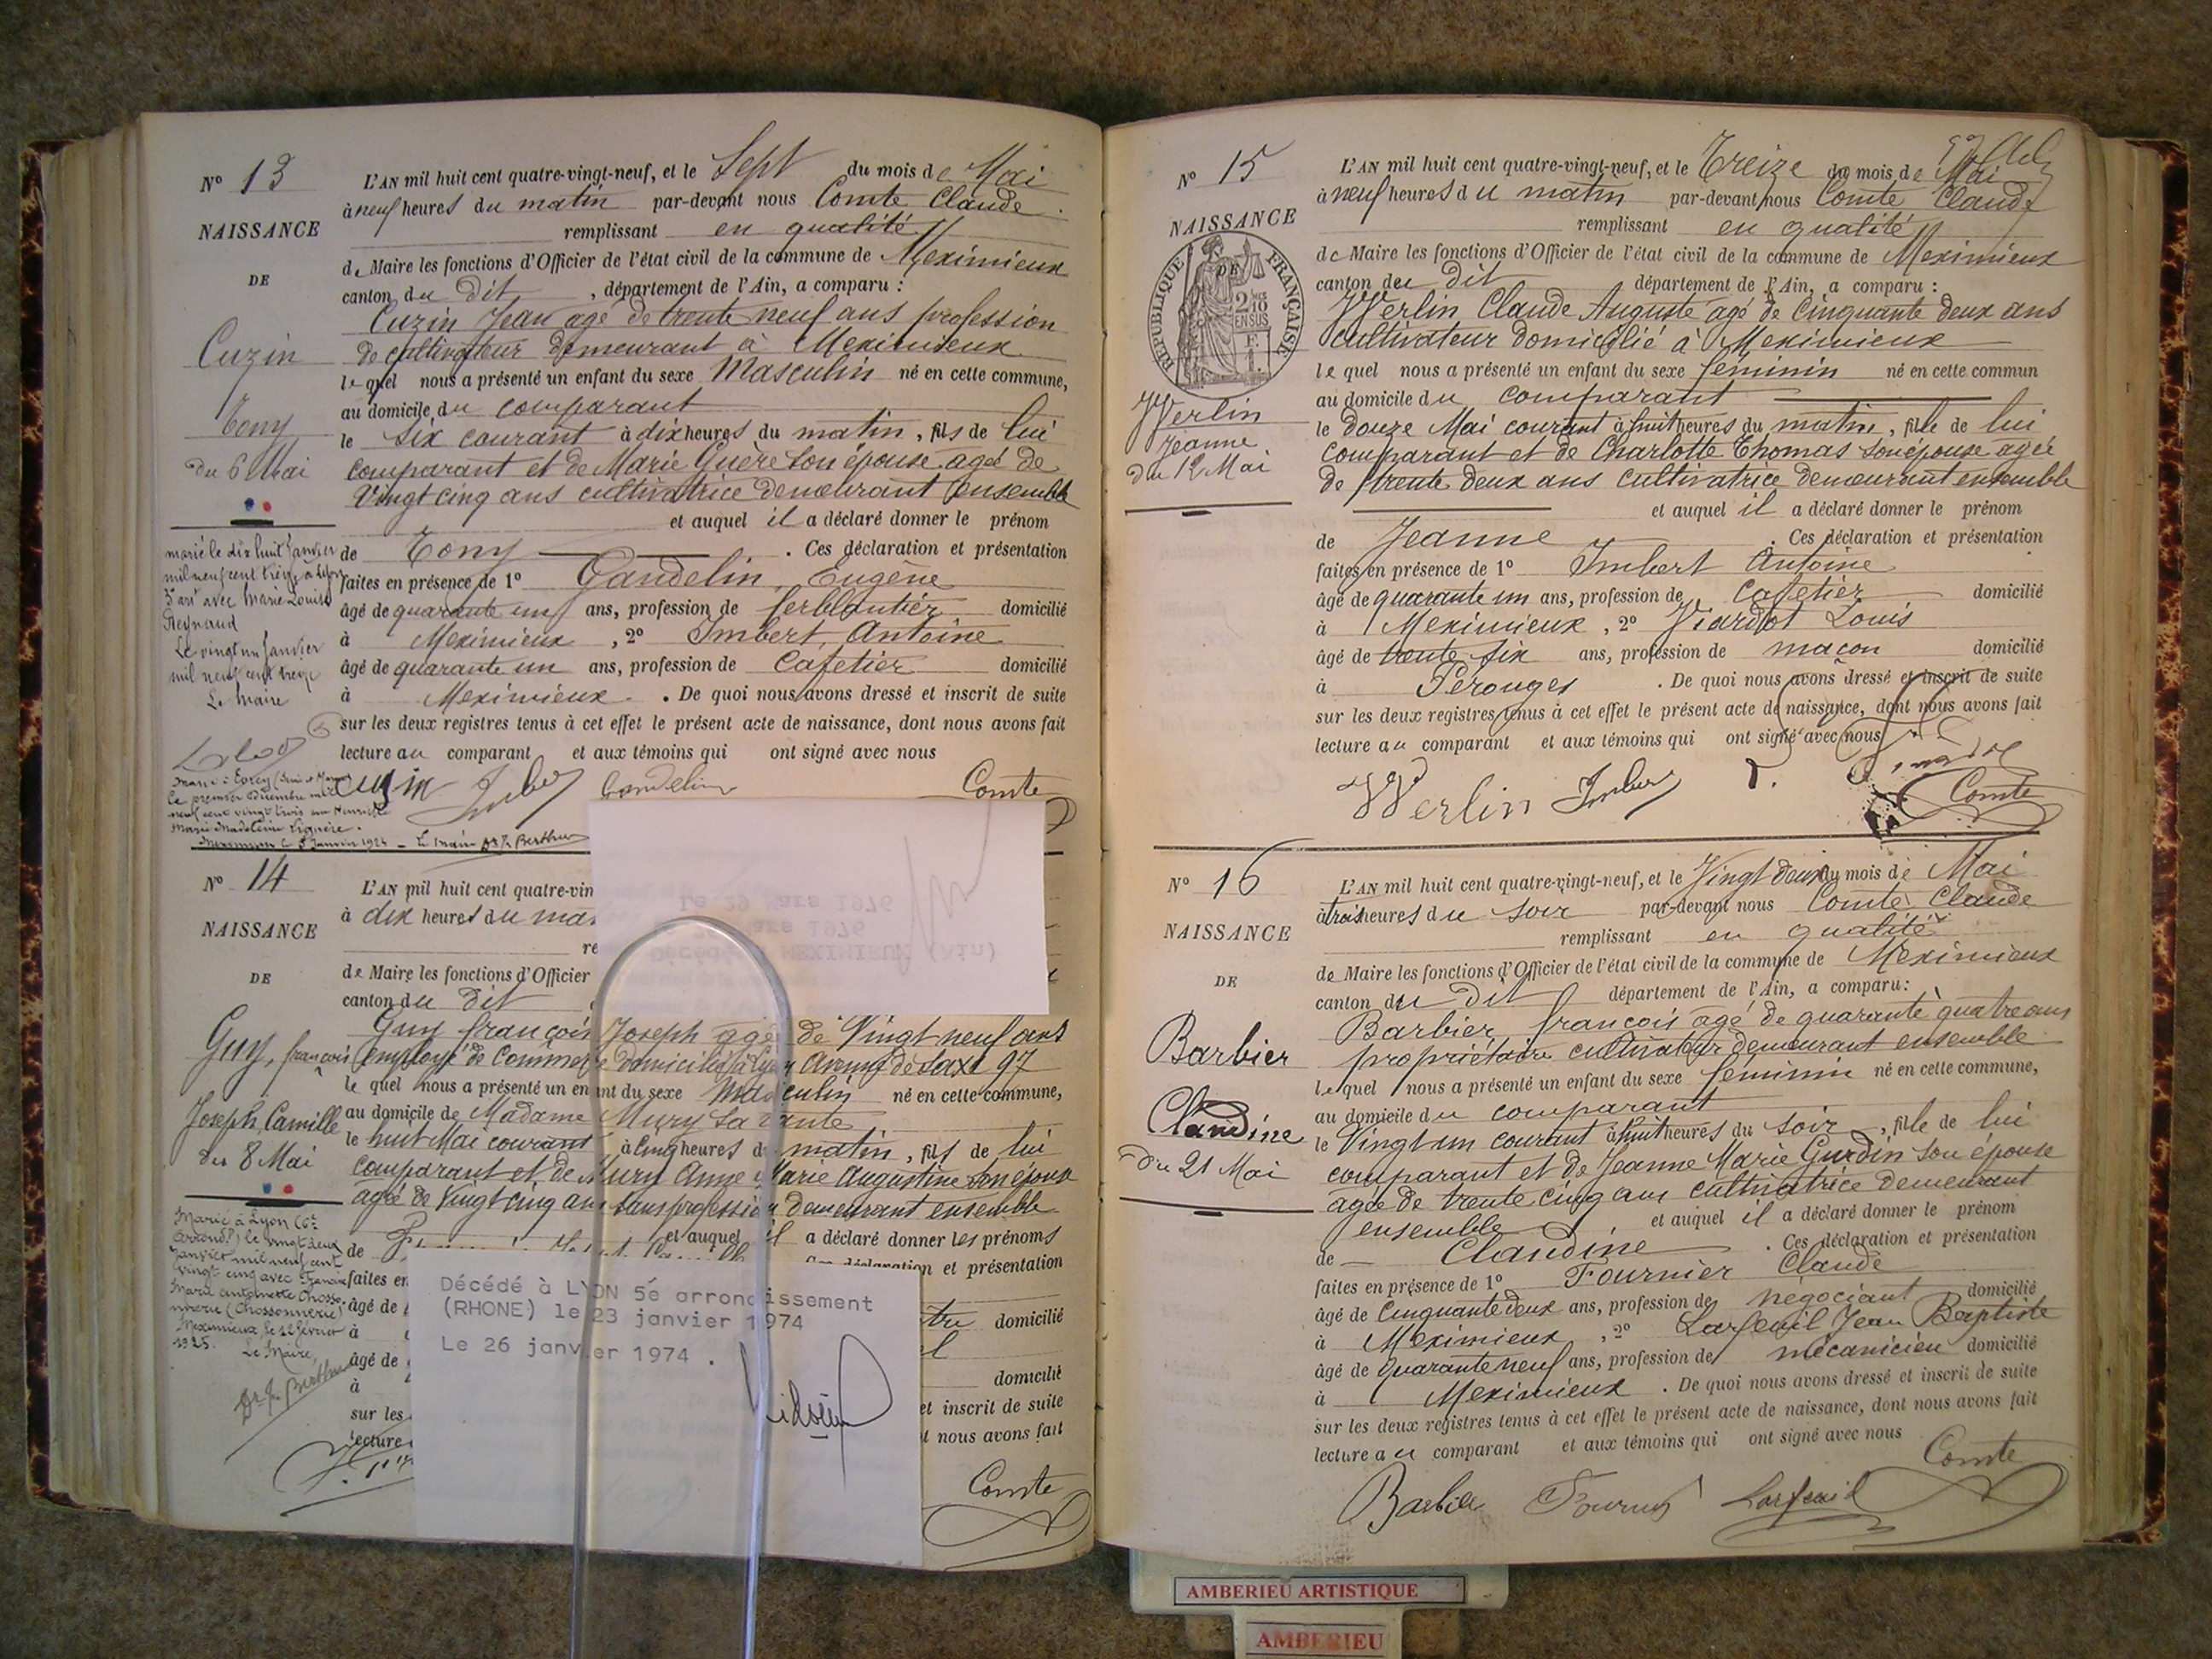 N° 13
NAISSANCE
DE
Cuzin
Tony
du 6 Mai
marié le dix huit Janvier
mil neuf cent treize à Lyon
3e arrt avec Marie Louise
Reynaud
Le vingt un Janvier
mil neuf cent treize
Le Maire
le premier décembre mil
neuf cent vingt trois avec Henriette
Marie Madeleine
Meximieux le 5 Janvier 1924 - Le Maire Dr J. Berthier
L'AN mil huit cent quatre-vingt-neuf, et le Sept du mois de Mai
à neuf heures du matin par-devant nous Comte Claude
remplissant en qualité
de Maire les fonctions d'Officier de l'état civil de la commune de Meximieux
canton du dit, département de l'Ain, a comparu :
Cuzin Jean agé de trente neuf ans profession
de cultivateur demeurant à Meximieux
lequel nous a présenté un enfant du sexe Masculin né en cette commune,
au domicile du comparant
le six courant à dix heures du matin, fils de lui
comparant et de Marie Guere son épouse agée de
Vingt cinq ans cultivatrice demeurant ensemble
et auquel il a déclaré donner le prénom
de Tony . Ces déclaration et présentation
faites en présence de 1° Gandelin, Eugène
âgé de quarante un ans, profession de ferblantier domicilié
à Meximieux, 2° Imbert, Antoine
âgé de quarante un ans, profession de Cafetier domicilié
à Meximieux . De quoi nous avons dressé et inscrit de suite
sur les deux registres tenus à cet effet le présent acte de naissance, dont nous avons fait
lecture au comparant et aux témoins qui ont signé avec nous
Cuzin Imbert Gandelin Comte
N° 14
NAISSANCE
DE
Guy, françois
Joseph, Camille
du 8 Mai
Marié à Lyon (6e
arrond.) le vingt deux
Janvier mil neuf cent
vingt cinq avec
Marie Antoinette
(Chossonnerie)
Meximieux, le 12 février
1925.
Le Maire,
Dr J. Berthier
L'AN mil huit cent quatre-vin
à dix heures du mat
re
de Maire les fonctions d'Officier
canton du dit
Le 29 Mars 1976
Mars 1976
Décédé à MEXIMIEUX (Ain)
Guy françois Joseph agé de Vingt neuf ans
employé de Commerce domicilié à Lyon Avenue de Saxe 97
le quel nous a présenté un enfant du sexe Masculin né en cette commune,
au domicile de Madame Mury
le huit Mai courant à cinq heures du matin, fils de lui
comparant et de Mury Anne Marie Augustine son épouse
agée de Vingt cinq ans sans profession demeurant ensemble
et auquel il a déclaré donner les prénoms
de
déclaration et présentation
faites en
âgé de
domicilié
à
âgé de
domicilié
à
et inscrit de suite
sur les
nous avons fait
lecture
Décédé à LYON 5é arrondissement
(RHONE) le 23 janvier 1974
Le 26 janvier 1974 .
Comte
N° 15
NAISSANCE
DE
REPUBLIQUE FRANÇAISE
2/10 EN SUS
Werlin
Jeanne
du 12 Mai
L'AN mil huit cent quatre-vingt-neuf, et le Treize du mois de Mai
à neuf heures du matin par-devant nous Comte Claude
remplissant en qualité
de Maire les fonctions d'Officier de l'état civil de la commune de Meximieux
canton du dit département de l'Ain, a comparu :
Werlin Claude Auguste agé de Cinquante deux ans
Cultivateur domicilié à Meximieux
le quel nous a présenté un enfant du sexe féminin né en cette commun
au domicile du comparant
le douze Mai courant à huit heures du matin, fille de lui
comparant et de Charlotte Thomas son épouse agée
de trente deux ans cultivatrice demeurant ensemble
et auquel il a déclaré donner le prénom
de Jeanne . Ces déclaration et présentation
faites en présence de 1° Imbert Antoine
âgé de quarante un ans, profession de Cafetier domicilié
à Meximieux, 2° Viardot Louis
âgé de trente six ans, profession de maçon domicilié
à Pérouges . De quoi nous avons dressé et inscrit de suite
sur les deux registres tenus à cet effet le présent acte de naissance, dont nous avons fait
lecture au comparant et aux témoins qui ont signé avec nous
Werlin Imbert Comte
N° 16
NAISSANCE
DE
Barbier
Claudine
du 21 Mai
L'AN mil huit cent quatre-vingt-neuf, et le Vingt deux du mois de Mai
à trois heures du soir par-devant nous Comte Claude
remplissant en qualité
de Maire les fonctions d'Officier de l'état civil de la commune de Meximieux
canton du dit département de l'Ain, a comparu :
Barbier, françois agé de quarante quatre ans
propriétaire cultivateur demeurant ensemble
lequel nous a présenté un enfant du sexe féminin né en cette commune,
au domicile du comparant
le Vingt un courant à huit heures du soir, fille de lui
comparant et de Jeanne Marie Gurdin son épouse
agée de trente cinq ans cultivatrice demeurant
ensemble et auquel il a déclaré donner le prénom
de Claudine . Ces déclaration et présentation
faites en présence de 1° Fournier Claude
âgé de Cinquante deux ans, profession de négociant domicilié
à Meximieux, 2° Larfeuil Jean Baptiste
âgé de quarante neuf ans, profession de mécanicien domicilié
à Meximieux . De quoi nous avons dressé et inscrit de suite
sur les deux registres tenus à cet effet le présent acte de naissance, dont nous avons fait
lecture au comparant et aux témoins qui ont signé avec nous
Comte
Barbier Fournier Larfeuil
AMBERIEU ARTISTIQUE
AMBERIEU